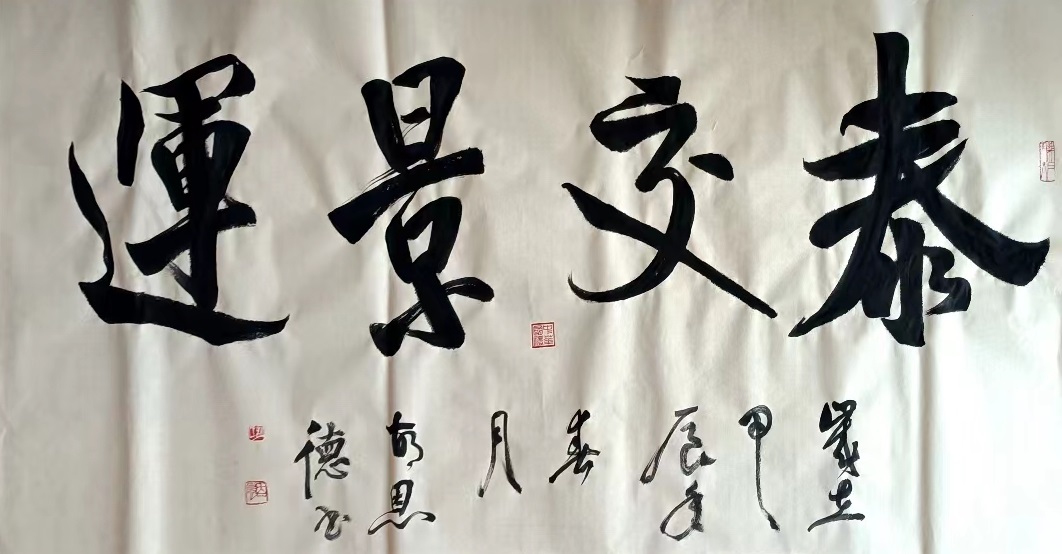 泰交景運
歲在
甲
辰年
春
月
胡恩
德书